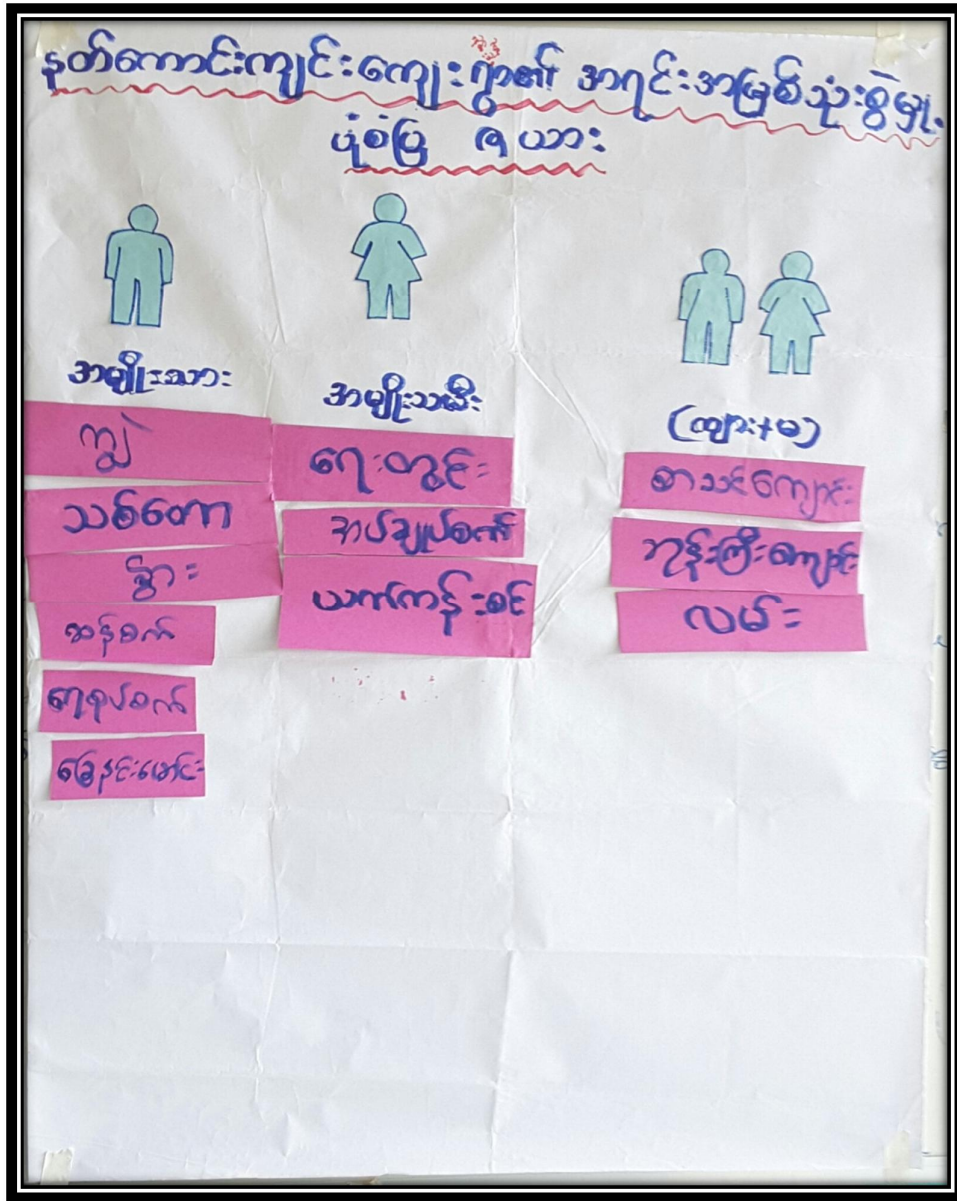 နတ်ကောင်းကျင်းကျေးရွာ၏ အရင်းအမြစ်သုံးစွဲမှု
ပုံစံပြ ဇယား
အမျိုးသား
ကျွဲ
သစ်တော
နွား
ဆန်စက်
ရေစုပ်စက်
မြေနင်းမောင်း
အမျိုးသမီး
ရေတွင်း
အပ်ချုပ်စက်
ယက်ကန်းစင်
(ကျား+မ)
စာသင်ကျောင်း
ဘုန်းကြီးကျောင်း
လမ်း